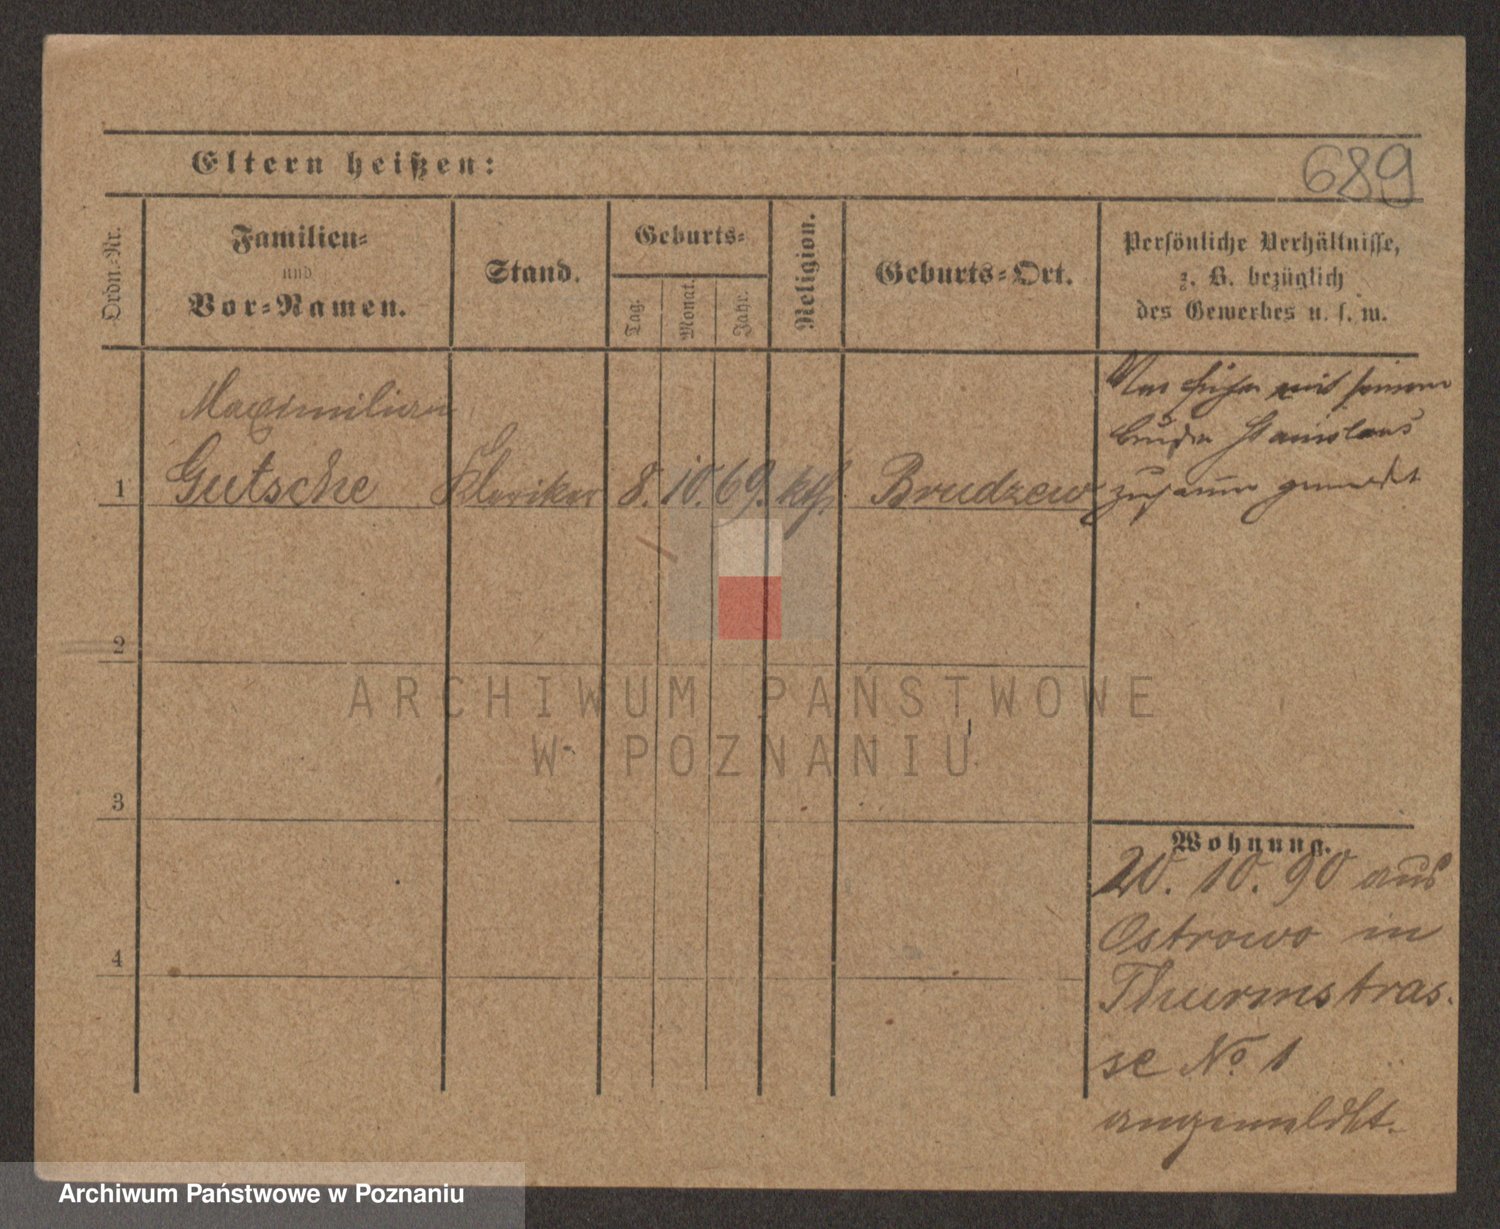 Eltern heißen:
689
Ordn.-Nr.
Familien-
und
Vor-Namen.
Stand.
Geburts-
Tag.
Monat.
Jahr.
Religion.
Geburts-Ort.
Persönliche Verhältnisse,
z. B. bezüglich
des Gewerbes u. s. w.
Maximilian
1 Gutsche Kleriker 8. 10. 69. kth. Brudzew
War früher mit seinem
Bruder Stanislaus
zusammen gemeldet
2
ARCHIWUM PAŃSTWOWE
W POZNANIU
3
Wohnung.
20. 10. 90 aus
Ostrowo in
Thurmstras.
se No 1
angemeldet.
4
Archiwum Państwowe w Poznaniu